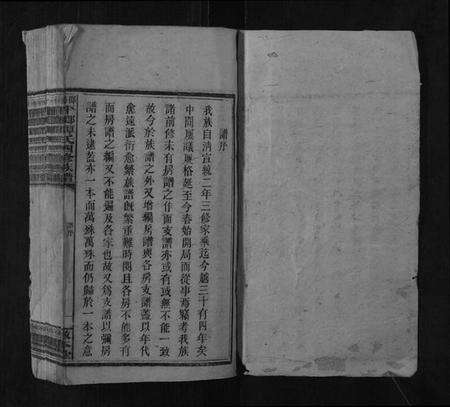 譜序
我族自清宣統二年三修家乘迄今越三十有四年矣
中間屢議屢格延至今春始開局而從事焉竊考我族
諸前修未有房譜之作而支譜亦或有或無不能一致
故今於族譜之外又增編房譜與各房支譜蓋以年代
愈遠派衍愈繁族譜既繁重難時閱且各房不能多有
而房譜之編又不能遍及各家也故又為支譜以彌房
譜之未逮蓋亦一本而萬殊萬殊而仍歸於一本之意
譜序